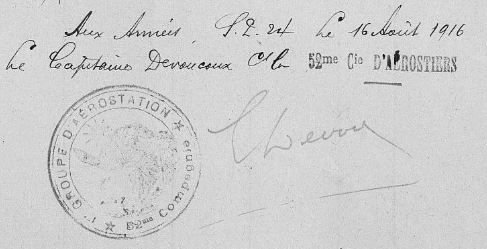 Aux Armées, S.P. 24 le 16 Août 1916
Le Capitaine Devoucoux Ct la 52me Cie D'AÉROSTIERS
1er GROUPE D'AÉROSTATION ★ 52me Compagnie ★